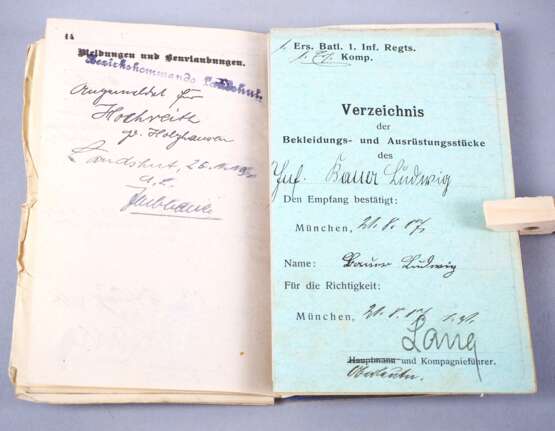 14
Meldungen und Beurlaubungen.
Bezirkskommando Landshut.
Angemeldet für
Hochreith
p. Holzhausen
Landshut, 25.
1. Ers. Batl. 1. Inf. Regts.
Komp.
Verzeichnis
der
Bekleidungs- und Ausrüstungsstücke
des
Inf. Bauer Ludwig
Den Empfang bestätigt:
München, 21. 8. 17.
Name: Bauer Ludwig
Für die Richtigkeit:
München, 21. 8. 17.
Lang
Hauptmann und Kompagnieführer.
Oberleutn.